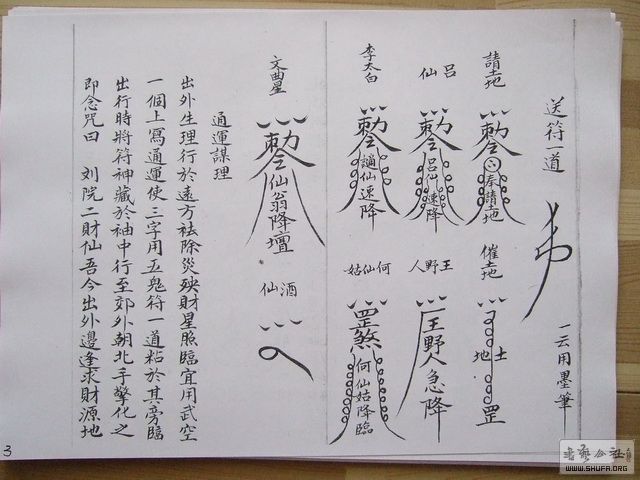 送符一道
一云用墨筆
請土地
敕令奉請土地
催土地
土地
罡
呂仙
敕令呂仙速降
王野人
王野人急降
李太白
敕令謫仙速降
何仙姑
罡煞何仙姑降臨
文曲星
敕令仙翁降壇
酒仙
通運謀理
出外生理行於遠方祛除災殃財星照臨宜用武空
一個上寫通運使三字用五鬼符一道粘於其旁臨
出行時將符神藏於袖中行至郊外朝北手擎化之
即念咒曰 刘院二財仙吾今出外邊逢求財源地
3
书法公社
WWW.SHUFA.ORG